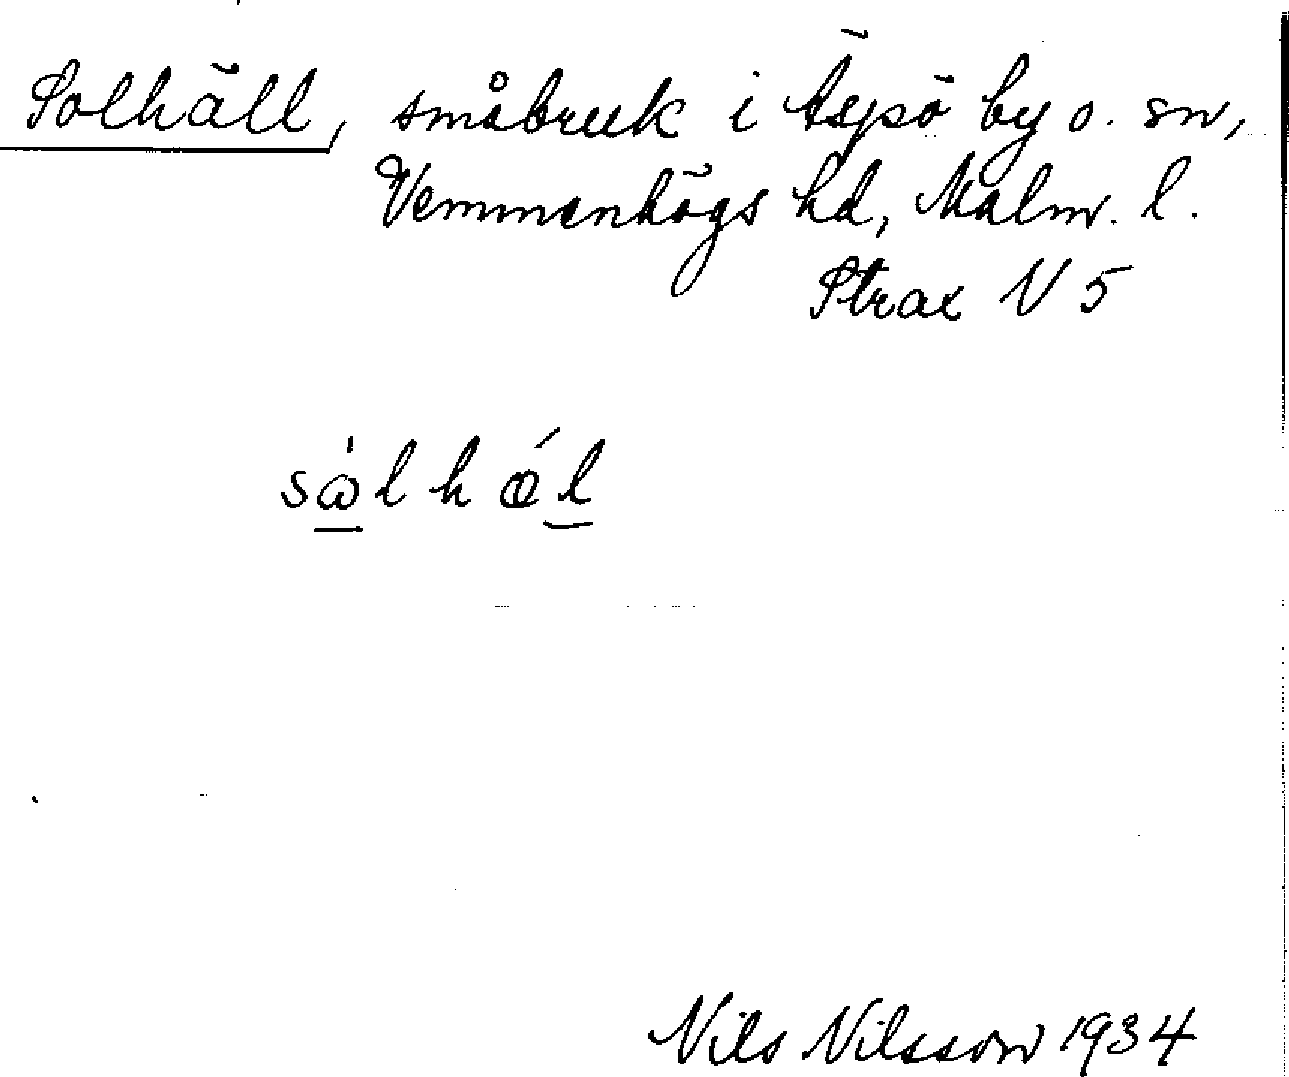 Solhäll, småbruk i Äspö by o. sn,
Vemmenhögs hd, Malm. l.
Strax N 5
sålhæl
Nils Nilsson 1934